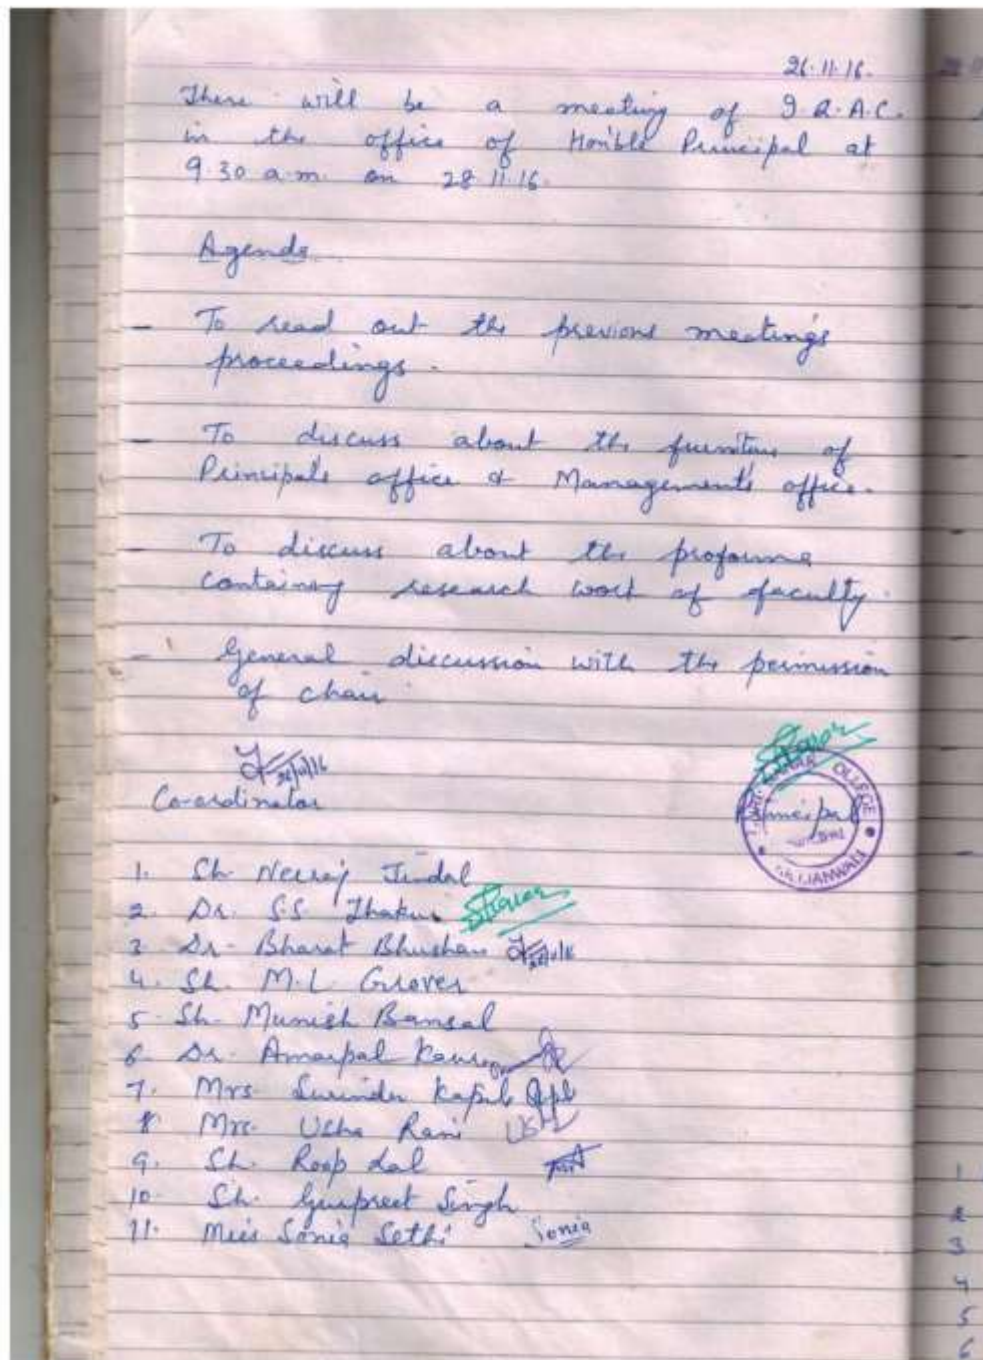 26.11.16.
There will be a meeting of I.Q.A.C.
in the office of Hon'ble Principal at
9.30 a.m. on 28.11.16.
Agenda
- To read out the previous meeting's
proceedings.
- To discuss about the furniture of
Principal's office & Management's office.
- To discuss about the proforma
containing research work of faculty.
- General discussion with the permission
of chair.
26/11/16
Co-ordinator
Principal
1. Sh. Neeraj Jindal
2. Dr. S.S. Thakur
3 Dr. Bharat Bhushan
4. Sh. M.L. Grover
5. Sh. Munish Bansal
6 Dr. Amarpal Kaur
7. Mrs Surinder Kapil
8 Mrs. Usha Rani Usha
9. Sh. Roop Lal
10. Sh. Gurpreet Singh
11. Miss Sonia Sethi Sonia
1
2
3
4
5
6